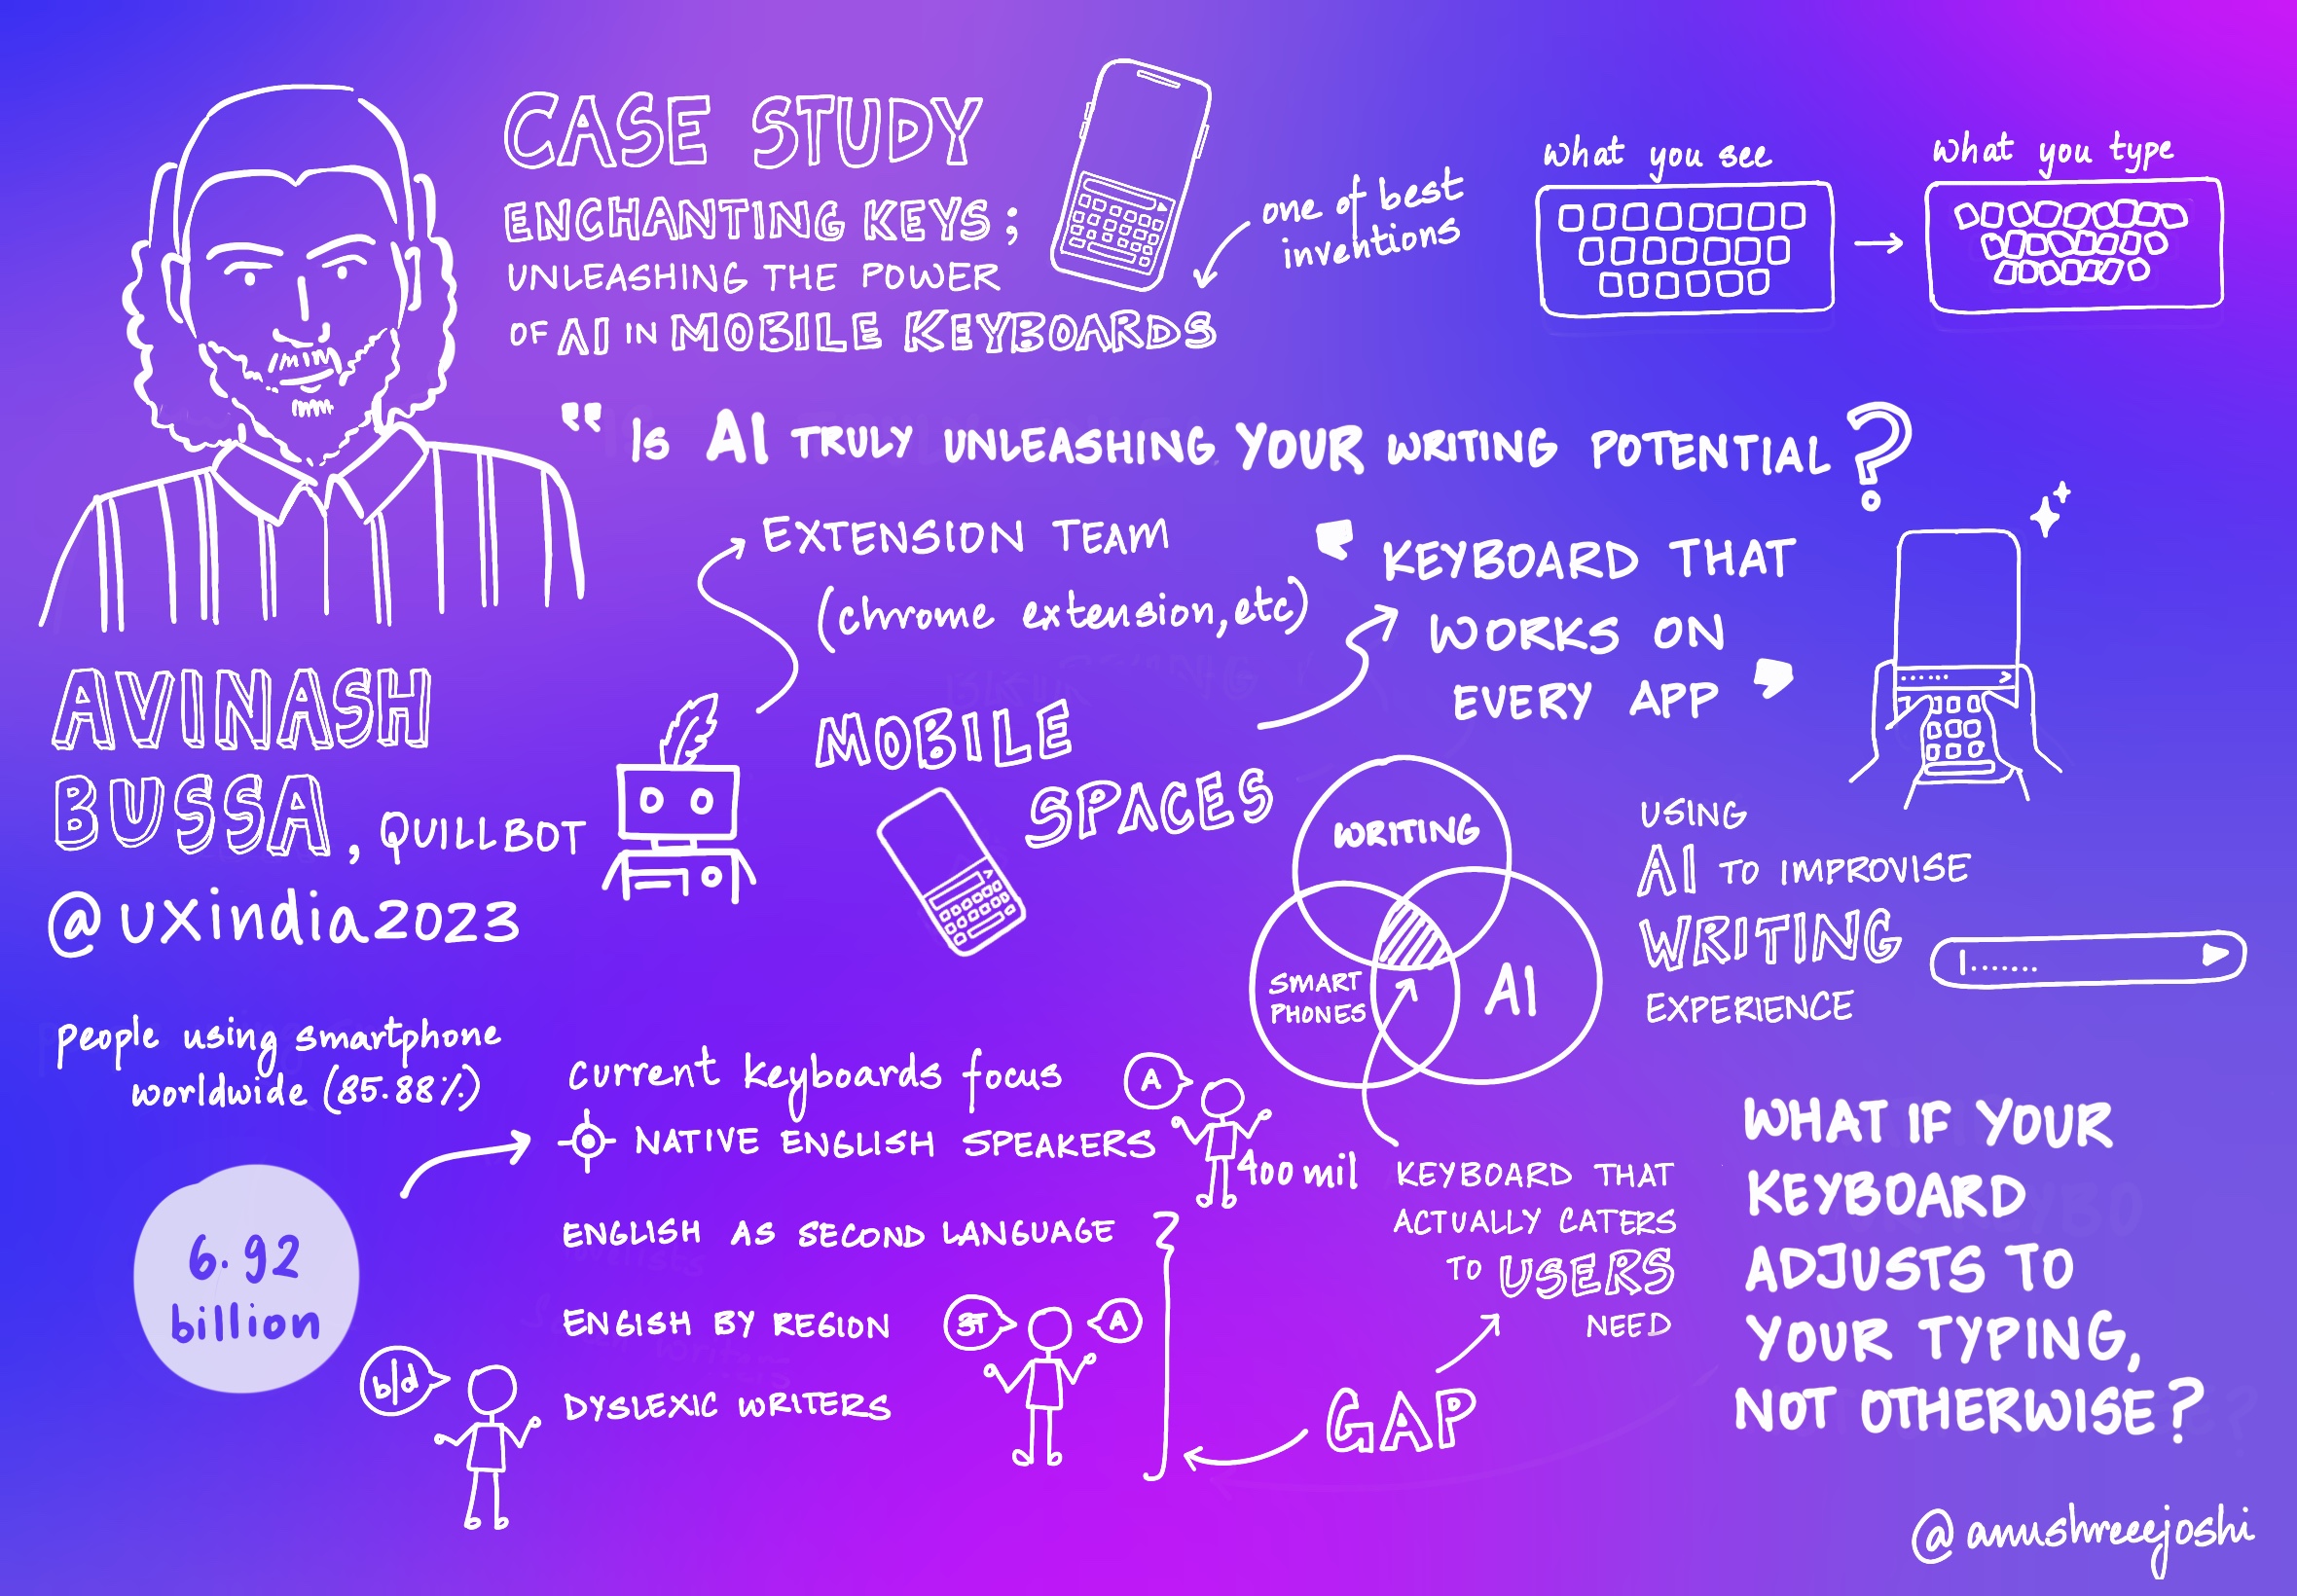 CASE STUDY
ENCHANTING KEYS;
UNLEASHING THE POWER
OF AI IN MOBILE KEYBOARDS
one of best
inventions
What you see
What you type
" IS AI TRULY UNLEASHING YOUR WRITING POTENTIAL?
EXTENSION TEAM
(chrome extension, etc)
" KEYBOARD THAT
WORKS ON
EVERY APP "
AVINASH
BUSSA, QUILLBOT
@uxindia2023
MOBILE
SPACES
WRITING
SMART
PHONES
AI
USING
AI TO IMPROVISE
WRITING
EXPERIENCE
people using smartphone
worldwide (85.88%)
6.92
billion
current keyboards focus
NATIVE ENGLISH SPEAKERS
A
400 mil
ENGLISH AS SECOND LANGUAGE
ENGISH BY REGION
अ
A
DYSLEXIC WRITERS
b|d
KEYBOARD THAT
ACTUALLY CATERS
TO USERS
NEED
GAP
WHAT IF YOUR
KEYBOARD
ADJUSTS TO
YOUR TYPING,
NOT OTHERWISE?
@anushreeejoshi